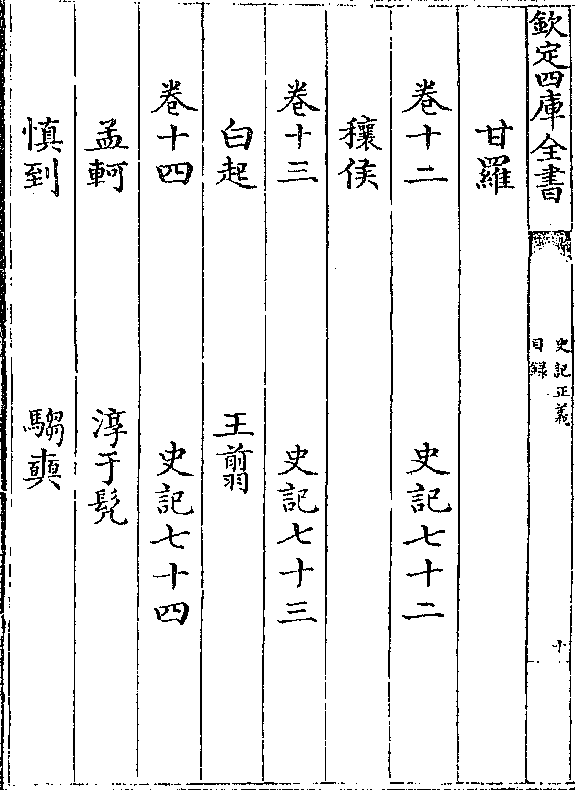 欽定四庫全書
史記正義
目錄
十
甘羅
卷十二 史記七十二
穰侯
卷十三 史記七十三
白起 王翦
卷十四 史記七十四
孟軻 淳于髠
慎到 騶奭